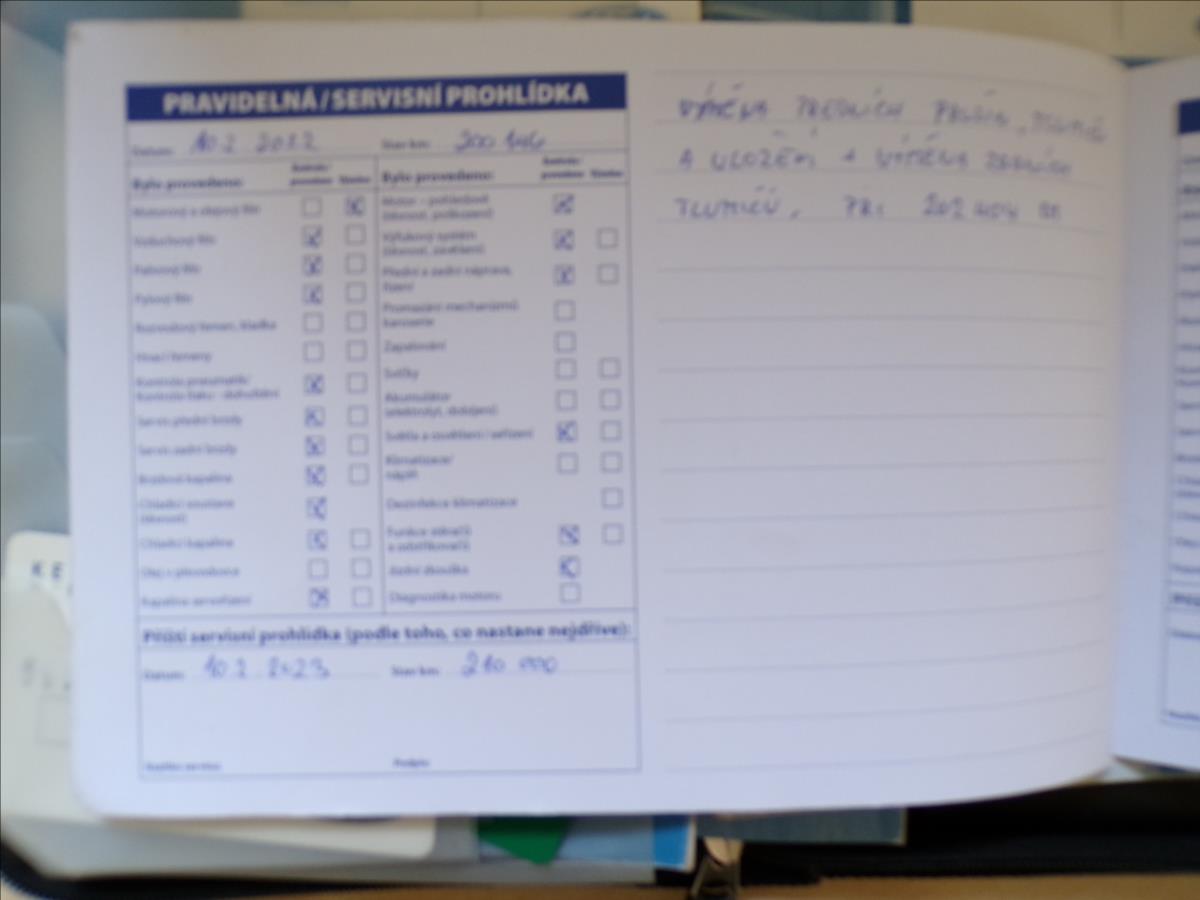 PRAVIDELNÁ / SERVISNÍ PROHLÍDKA
Datum: 10.2 2022 Stav km: 200 146
Bylo provedeno: Kontrola/ Výměna Bylo provedeno: Kontrola/ Výměna
Motorový a olejový filtr
Vzduchový filtr
Palivový filtr
Pylový filtr
Rozvodový řemen, kladka
Hnací řemeny
Kontrola pneumatik/
Kontrola tlaku - dohuštění
Servis přední brzdy
Servis zadní brzdy
Brzdová kapalina
Chladicí soustava
(těsnost)
Chladicí kapalina
Olej v převodovce
Kapalina servořízení
Motor – pohledově
(těsnost, poškození)
Výfukový systém
(těsnost, zavěšení)
Přední a zadní náprava,
řízení
Promazání mechanizmů
karoserie
Zapalování
Svíčky
Akumulátor
(elektrolyt, dobíjení)
Světla a osvětlení / seřízení
Klimatizace/
náplň
Dezinfekce klimatizace
Funkce stěračů
a ostřikovačů
Jízdní zkouška
Diagnostika motoru
Příští servisní prohlídka (podle toho, co nastane nejdříve):
Datum: 10.2 2023 Stav km: 210 000
Razítko servisu Podpis
VÝMĚNA PŘEDNÍCH PRUŽIN, TLUMIČŮ
A ULOŽENÍ + VÝMĚNA ZADNÍCH
TLUMIČŮ, PŘI 202 404